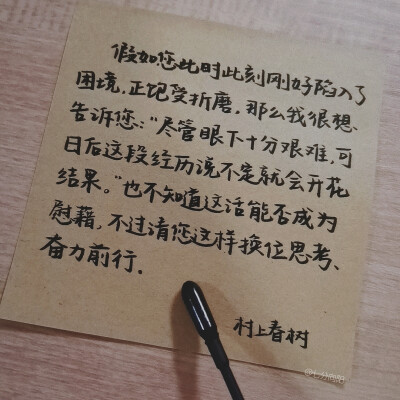 假如您此时此刻刚好陷入了
困境，正饱受折磨，那么我很想
告诉您：“尽管眼下十分艰难，可
日后这段经历说不定就会开花
结果。”也不知道这话能否成为
慰藉，不过请您这样换位思考、
奋力前行.
村上春树